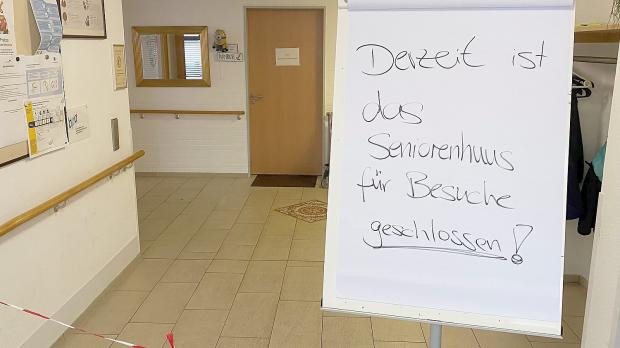 Derzeit ist
das
Seniorenhaus
für Besuche
geschlossen!